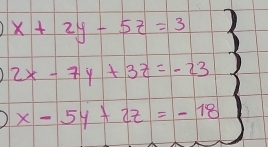 ) x + 2y - 5z = 3
) 2x - 7y + 3z = -23
) x - 5y + 2z = -18